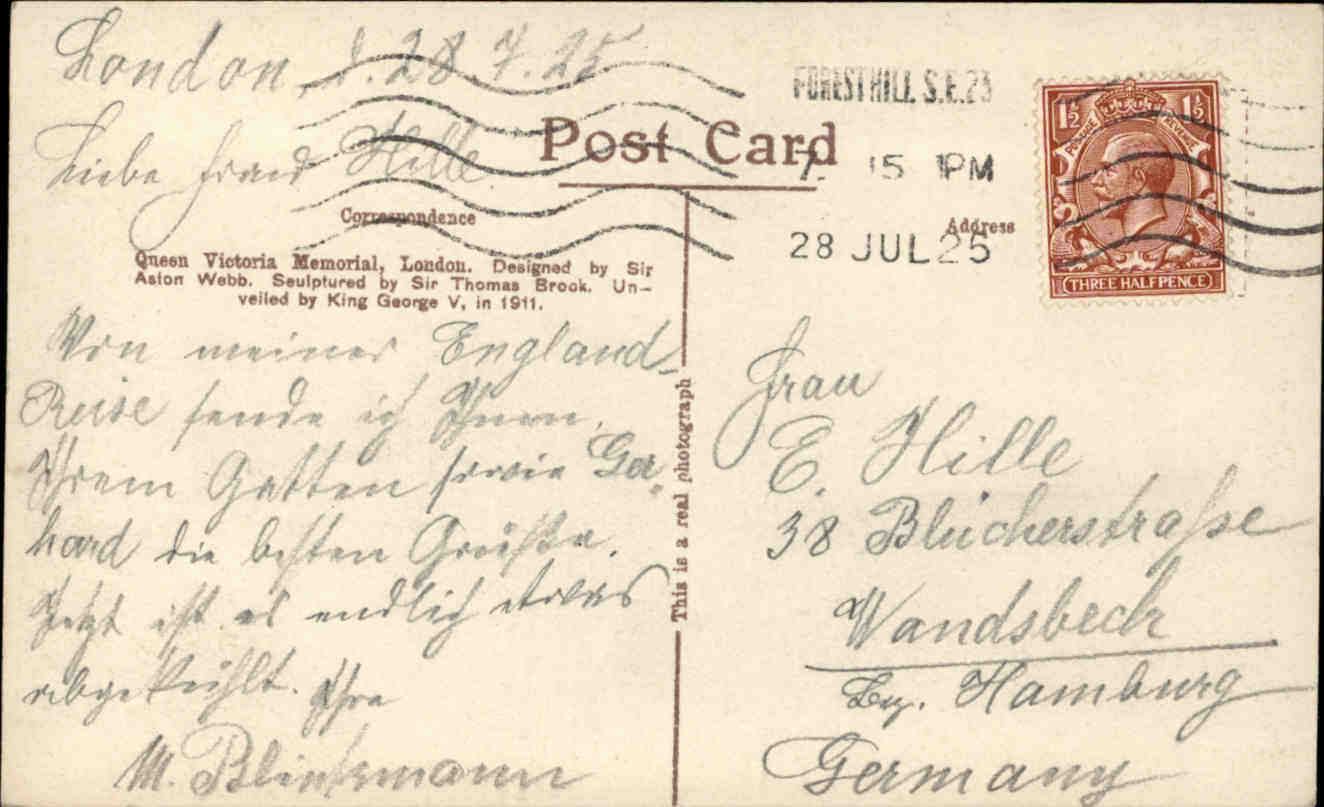 London, d. 28.7.25
Liebe Frau Hille
Post Card
Correspondence
Queen Victoria Memorial, London. Designed by Sir
Aston Webb. Sculptured by Sir Thomas Brock. Un-
veiled by King George V, in 1911.
Von meiner England-
Reise sende ich Ihnen,
Ihrem Gatten sowie Ger-
hard die besten Grüße.
Jetzt ist es endlich etwas
abgekühlt. Ihre
M.
This is a real photograph
FOREST HILL S.E.23
15 PM
28 JUL 25
Address
1½ 1½
POSTAGE REVENUE
THREE HALFPENCE
Frau
E. Hille
38 Blücherstraße
Wandsbeck
Hamburg
Germany